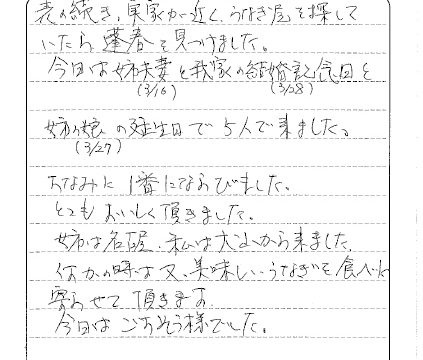 表の続き、実家が近く、うなぎ屋を探して
いたら蓬春を見つけました。
今日は姉夫妻と我家の結婚記念日と
(3/16) (3/28)
姉の娘の誕生日で5人で来ました。
(3/27)
ちなみに1番にならびました。
とてもおいしく頂きました。
姉は名古屋、私は から来ました。
何かの時は又、美味しいうなぎを食べに
寄らせて頂きます。
今日はごちそう様でした。